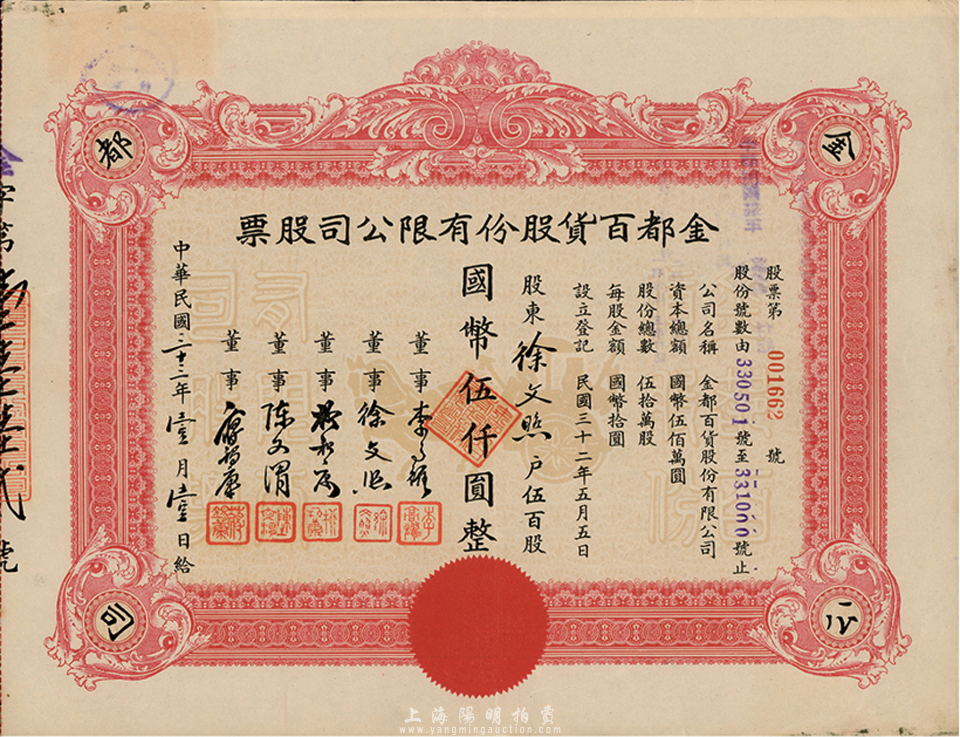 金都百貨股份有限公司股票
股票第 001662 號
股份號數由 330501 號至 331000 號止
公司名稱 金都百貨股份有限公司
資本總額 國幣伍佰萬圓
股份總數 伍拾萬股
每股金額 國幣拾圓
設立登記 民國三十二年五月五日
股東徐文照户伍百股
國幣伍仟圓整
董事
董事徐文照
董事
董事陈文渭
董事
中華民國三十二年壹月壹日給
金
都
公
司
字第
號
上海陽明拍賣
www.yangmingauction.com